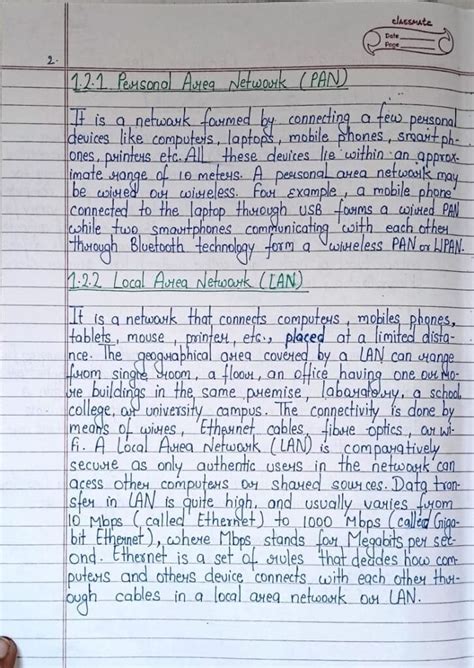 classmate
Date
Page
2.
1.2.1 Personal Area Network (PAN)
It is a network formed by connecting a few personal
devices like computers, laptops, mobile phones, smart ph-
ones, printers etc. All these devices lie within an approx-
imate range of 10 meters. A personal area network may
be wired or wireless. For example, a mobile phone
connected to the laptop through USB forms a wired PAN
while two smartphones communicating with each other
through Bluetooth technology form a wireless PAN or WPAN.
1.2.2 Local Area Network (LAN)
It is a network that connects computers, mobiles phones,
tablets, mouse, printer, etc., placed at a limited dista-
nce. The geographical area covered by a LAN can range
from single room, a floor, an office having one or mo-
re buildings in the same premise, laboratory, a school,
college, or university campus. The connectivity is done by
means of wires, Ethernet cables, fibre optics, or wi-
fi. A Local Area Network (LAN) is comparatively
secure as only authentic users in the network can
acess other computers or shared sources. Data tran-
sfer in LAN is quite high, and usually varies from
10 Mbps (called Ethernet) to 1000 Mbps (called Giga-
bit Ethernet), where Mbps stands for Megabits per sec-
ond. Ethernet is a set of rules that decides how com-
puters and others device connects with each other thr-
ough cables in a local area network or LAN.